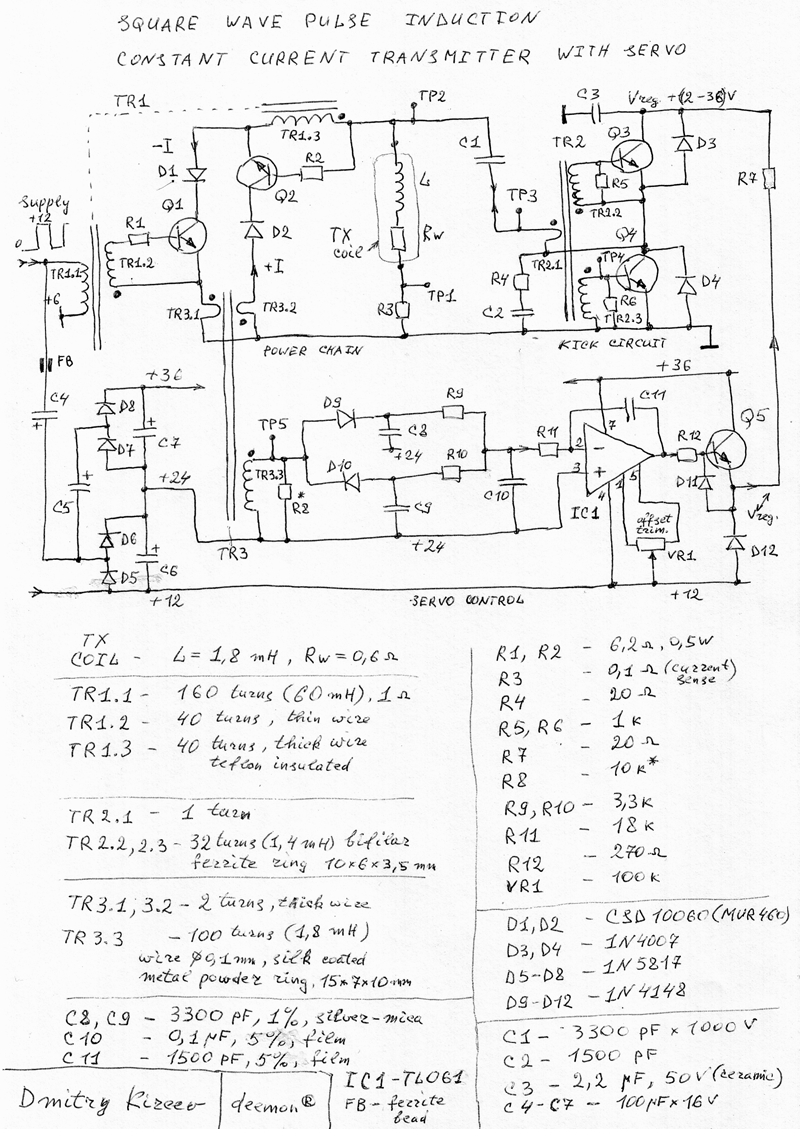 SQUARE WAVE PULSE INDUCTION
CONSTANT CURRENT TRANSMITTER WITH SERVO
TR1
TP2
C3
Vreg +(2-36)V
TR1.3
Q3
D3
-I
D1
R2
C1
TR2
R7
Q2
L
R5
Supply
+12
0
Q1
TP3
TR2.2
R1
D2
TX
coil
Rw
Q4
TR1.1
TR1.2
+I
TR2.1
TP4
D4
+6
R4
TP1
R6
TR3.1
TR3.2
R3
C2
TR2.3
POWER CHAIN
KICK CIRCUIT
FB
+36
+36
C4
D8
D9
R9
C11
Q5
C7
TP5
C8
R11
7
R12
D7
+24
2
-
TR3.3
D10
R10
3
+
C5
+24
R2*
C10
D11
4
1
5
D6
C9
IC1
offset
trim.
Vreg.
TR3
+24
D12
C6
VR1
D5
+12
SERVO CONTROL
+12
TX
COIL - L = 1,8 mH, Rw = 0,6 Ω
TR1.1 - 160 turns (60mH), 1 Ω
TR1.2 - 40 turns, thin wire
TR1.3 - 40 turns, thick wire
teflon insulated
TR2.1 - 1 turn
TR2.2, 2.3 - 32 turns (1,4 mH) bifilar
ferrite ring 10×6×3,5 mm
TR3.1, 3.2 - 2 turns, thick wire
TR3.3 - 100 turns (1,8 mH)
wire ϕ0,1mm, silk coated
metal powder ring, 15×7×10mm
C8, C9 - 3300 pF, 1%, silver-mica
C10 - 0,1 μF, 5%, film
C11 - 1500 pF, 5%, film
R1, R2 - 6,2 Ω, 0,5W
R3 - 0,1 Ω (current)
sense
R4 - 20 Ω
R5, R6 - 1 K
R7 - 20 Ω
R8 - 10 K*
R9, R10 - 3,3K
R11 - 18 K
R12 - 270 Ω
VR1 - 100 K
D1, D2 - CSD10060 (MUR460)
D3, D4 - 1N4007
D5-D8 - 1N5817
D9-D12 - 1N4148
C1 - 3300 pF × 1000 V
C2 - 1500 pF
C3 - 2,2 μF, 50V (ceramic)
C4-C7 - 100μF×16V
IC1-TL061
FB - ferrite
bead
Dmitry Kireev
deemon®